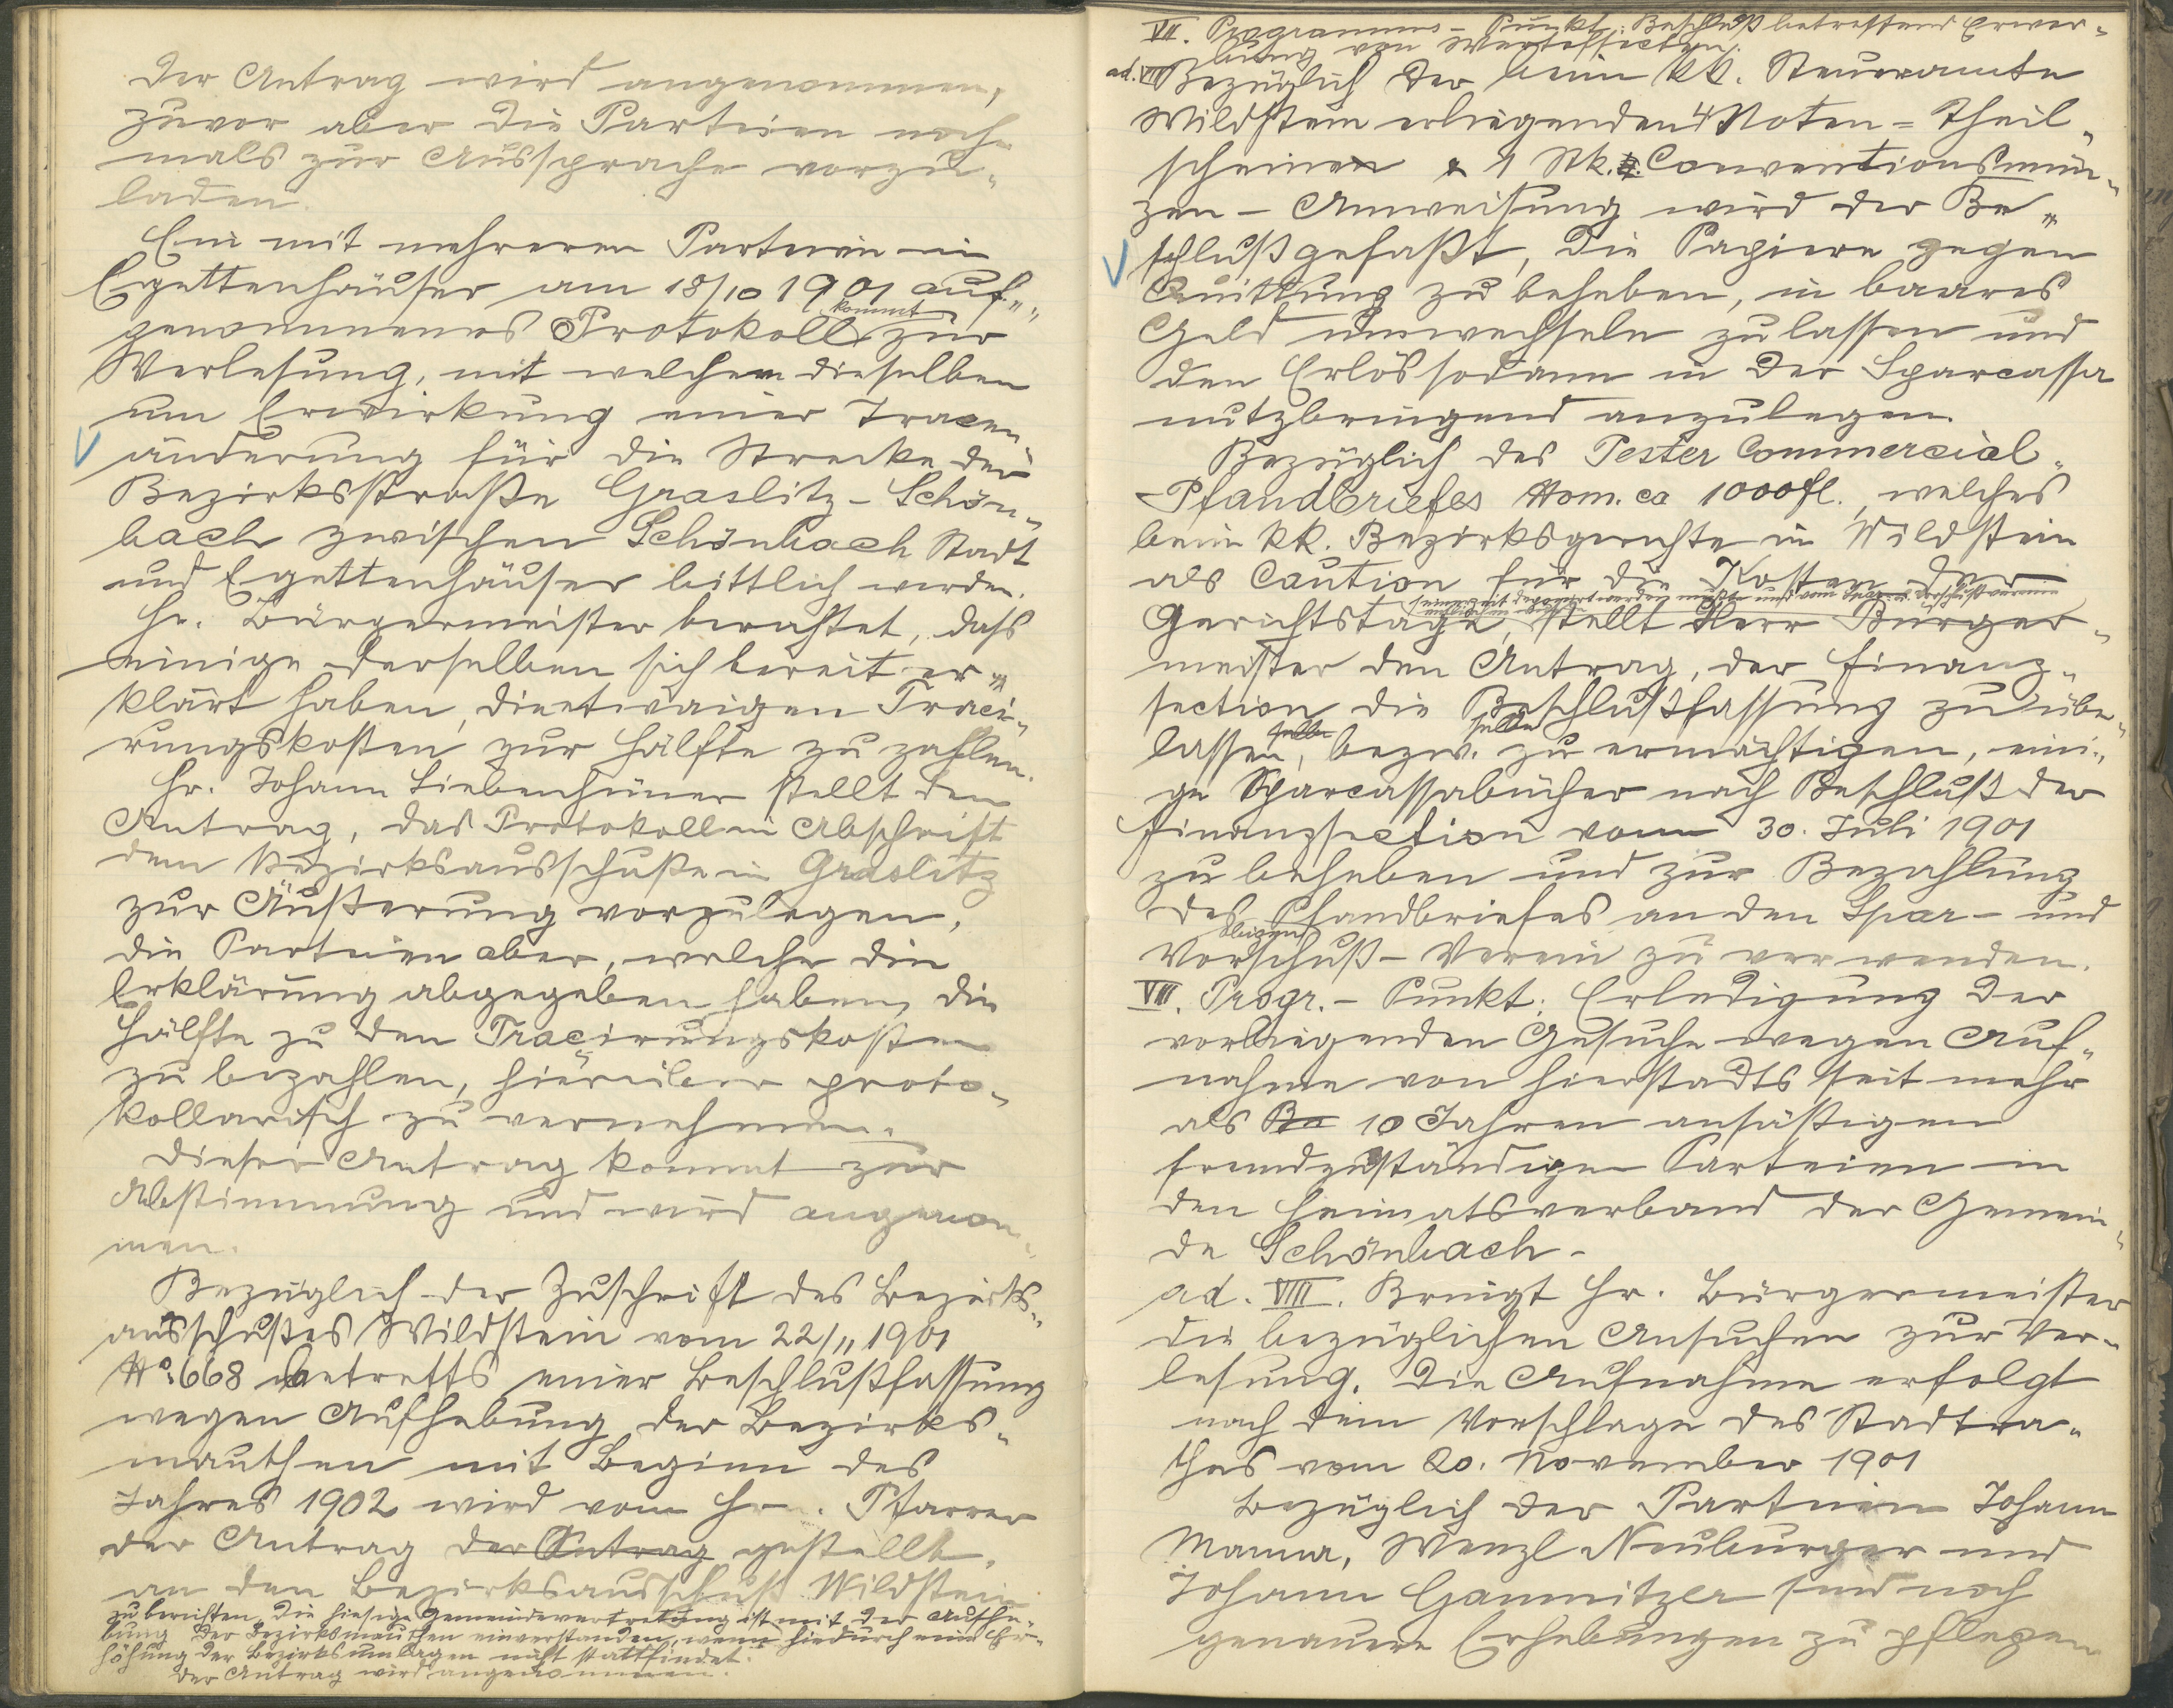 Der Antrag wird angenommen,
zuvor aber die Parteien noch-
mals zur Aussprache vorzu-
laden.
Ein mit mehreren Parteien in
Egettenhäuser am 18/10 1901 auf-
genommenes Protokoll kommt zur
Verlesung, mit welchem dieselben
um Erwirkung einer Tracen-
änderung für die Strecke der
Bezirksstraße Graslitz-Schön-
bach zwischen Schönbach Stadt
und Egettenhäuser bittlich werden.
Hr. Bürgermeister berichtet, dass
einige derselben sich bereit er-
klärt haben, die etwaigen Traci-
rungskosten zur Hälfte zu zahlen.
Hr. Johann Siebenhüner stellt den
Antrag, das Protokoll in Abschrift
dem Bezirksausschuße in Graslitz
zur Äußerung vorzulegen,
die Parteien aber, welche die
Erklärung abgegeben haben, die
Hälfte zu den Tracirungskosten
zu bezahlen, hierüber proto-
kollarisch zu vernehmen.
Dieser Antrag kommt zur
Abstimmung und wird angenom-
men.
Bezüglich der Zuschrift des Bezirks-
ausschußes Wildstein vom 22/11 1901
No. 668 betreffs einer Beschlußfassung
wegen Aufhebung der Bezirks-
mauthen mit Beginn des
Jahres 1902 wird vom Hrn. Pfarrer
der Antrag der Antrag gestellt,
an den Bezirksausschuß Wildstein
zu berichten, die hiesige Gemeindevertretung ist mit der Aufhe-
bung der Bezirksmauthen einverstanden, wenn hiedurch eine Er-
höhung der Bezirksumlagen nicht stattfindet.
Der Antrag wird angenommen.
VII. Programms-Punkt: Beschluß betreffend Erwer-
bung von Werteffecten.
ad. VII Bezüglich der beim kk. Steueramte
Wildstein erliegenden 4 Noten-Theil-
scheinen & 1 Stk. Conventionsmün-
zen-Anweisung wird der Be-
schluß gefaßt, die Papiere gegen
Quittung zu beheben, in baares
Geld umwechseln zu lassen und
den Erlös sodann in der Sparcassa
nutzbringend anzulegen.
Bezüglich des Pester Commercial-
-Pfandbriefes Nom. ca 1000 fl., welches
beim kk. Bezirksgerichte in Wildstein
als Caution für die Kosten der
seinerzeit deponirt werden mußte und vom Spar- u. Vorschußverein
Gerichtstage, stellt Herr Bürger-
meister den Antrag, der Finanz-
section die Beschlußfassung zu über-
lassen, bezw. selbe zu ermächtigen, eini-
ge Sparcassabücher nach Beschluß der
Finanzsection vom 30. Juli 1901
zu beheben und zur Bezahlung
des Pfandbriefes an den Spar- und
Vorschuß-Verein zu verwenden.
VIII. Progr.-Punkt: Erledigung der
vorliegenden Gesuche wegen Auf-
nahme von hierstadts seit mehr
als 10 Jahren ansäßigen
fremdzuständigen Parteien in
den Heimatsverband der Gemein-
de Schönbach-
ad. VIII. Bringt Hr. Bürgermeister
die bezüglichen Ansuchen zur Ver-
lesung. Die Aufnahme erfolgt
nach dem Vorschlage des Stadtra-
thes vom 20. November 1901
Bezüglich der Parteien Johann
Manna, Wenzl Neuburger und
Johann Gamnitzer sind noch
genauere Erhebungen zu pflegen